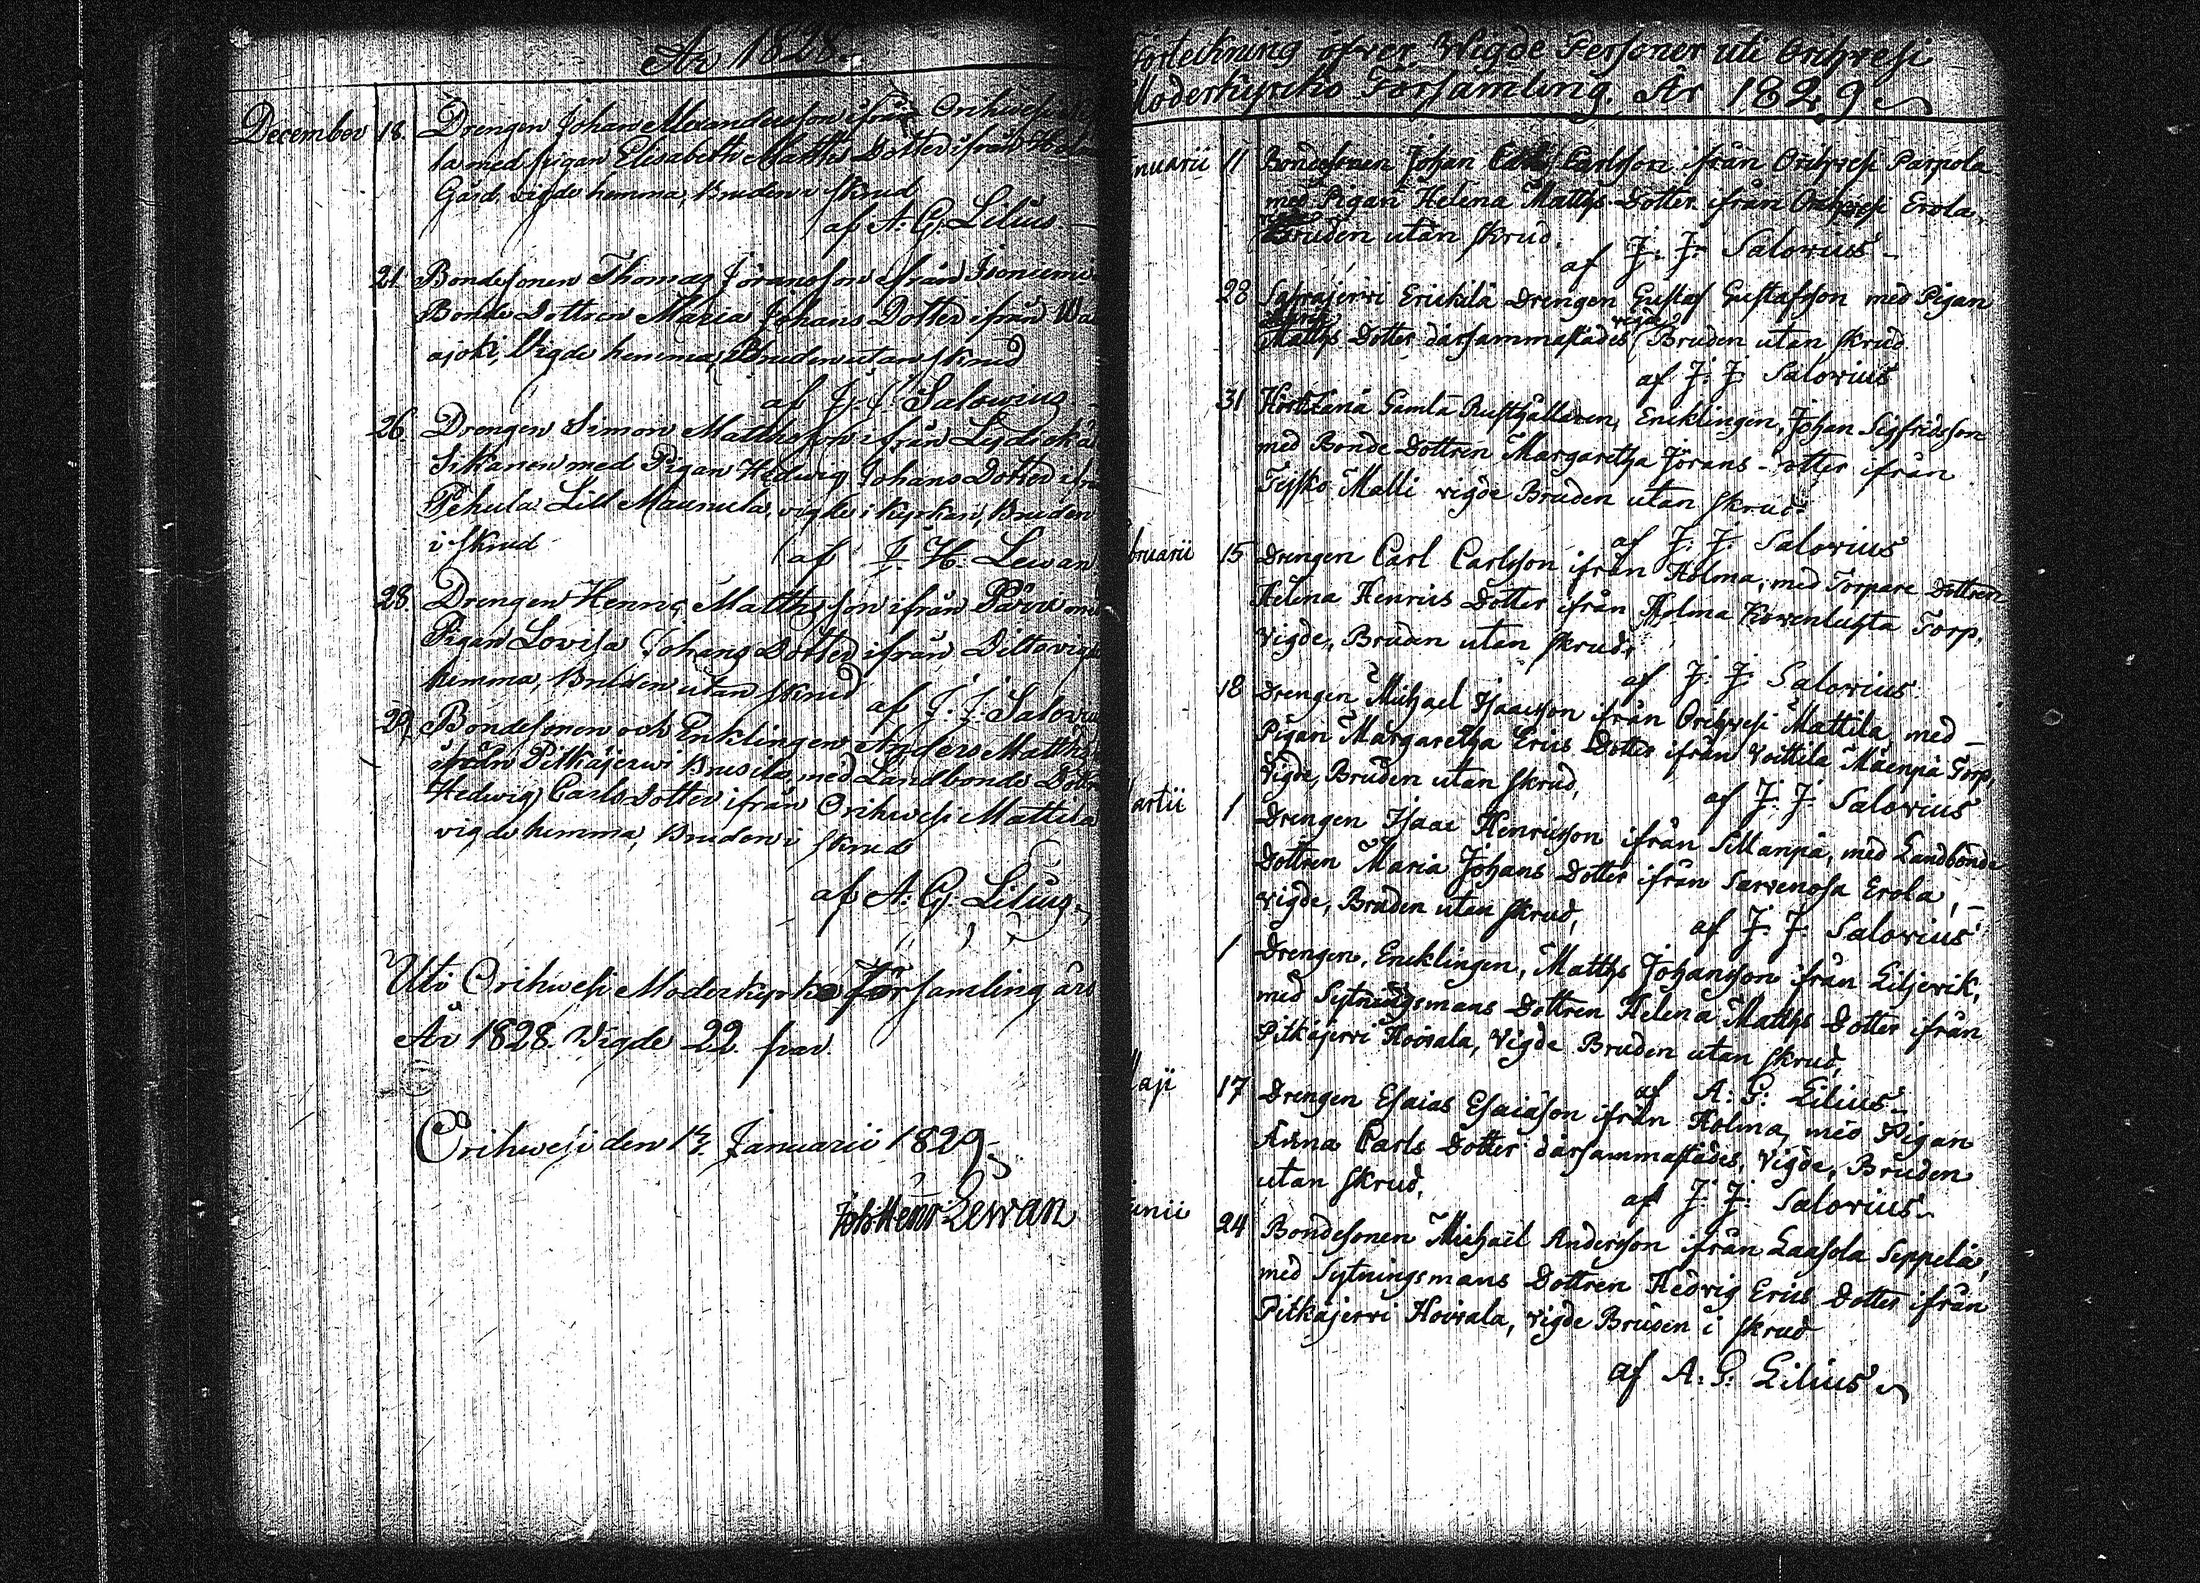 År 1828.
December 18. Drengen Johan Alexandersson ifrån Orihwesi
la med pigan Elisabeth Matths Dotter ifrån
Gård, vigde hemma, Bruden i skrud
af A: G: Lilius.
21. Bondesonen Thomas Jöransson ifrån Isoniemi
Bonde Dottren Maria Johans Dotter ifrån Wa
ajoki, Vigde hemma, Bruden utan skrud
af J: J: Salovius
26. Drengen Simon Matthsson ifrån
Sikanen med Pigan Hedwig Johans Dotter ifrå
Pehula Lill Maunula, vigde i kyrkan, Bruden
i skrud
af J. H. Lewan
28. Drengen Henric Matthsson ifrån Päivi
Pigan Lovisa Johans Dotter ifrån Ditto vigde
hemma, Bruden utan skrud af J: J: Salovius
29. Bondesonen och Enklingen Anders Matths
ifrån Pitkäjerwi Brusila, med Landbonde Dotr
Hedwig Carls Dotter ifrån Orihwesi Mattila
vigde hemma, Bruden i skrud
af A: G: Lilius
Uti Orihwesi Moderkyrko Församling äro
År 1828. Vigde 22. par.
Orihwesi den 13. Januarii 1829.
Joh: Henr: Lewan
Förteckning öfver Wigde Personer uti Orihvesi
Moderkyrcko Församling. År 1829
nuarii 11 Bondesonen Johan Carlsson ifrån Orihvesi Parpola
med Pigan Helena Matths Dotter ifrån Orihvesi Erola,
Bruden utan skrud.
af J: J: Salovius
28 Sahrajervi Erickilä Drengen Gustaf Gustafsson med Pigan
Matths Dotter därsammastädes vigde Bruden utan skrud
af J: J: Salovius
31 Gamla Rusthållaren, Encklingen, Johan Sigfridsson
med Bonde Dottren Margaretha Jörans-otter ifrån
Teisko Malli vigde Bruden utan skrud
af J: J: Salovius
bruarii 15 Drengen Carl Carlsson ifrån Holma, med Torpare Dottren
Helena Henrics Dotter ifrån Holma Kowenlahta Torp.
Vigde, Brudan utan skrud,
af J: J: Salovius
18 Drengen Michael Isaacsson ifrån Orihvesi Mattila, med
Pigan Margaretha Erics Dotter ifrån Voittila Mäenpä Torp,
Vigde, Bruden utan skrud,
af J: J: Salovius
artii 1 Drengen Isaac Henricsson ifrån Sillanpä, med Landbonde
Dottren Maria Johans Dotter ifrån Sarvenosa Erola,
vigde, Bruden utan skrud,
af J: J: Salovius
1 Drengen, Encklingen, Matths Johansson ifrån Liljevik,
med Sytningsmans Dottren Helena Matths Dotter ifrån
Pitkäjervi Hoivala, Vigde Bruden utan skrud,
af A: G: Lilius
aji 17 Drengen Esaias Esaiason ifrån Holma, med Pigan
Anna Carls Dotter därsammastädes, Vigde, Bruden
utan skrud,
af J: J: Salovius
unii 24 Bondesonen Michaël Andersson ifrån Laasola Seppelä,
med Sytningsmans Dottren Hedvig Erics Dotter ifrån
Pitkäjervi Hoivala, vigde Bruden i skrud
af A: G: Lilius